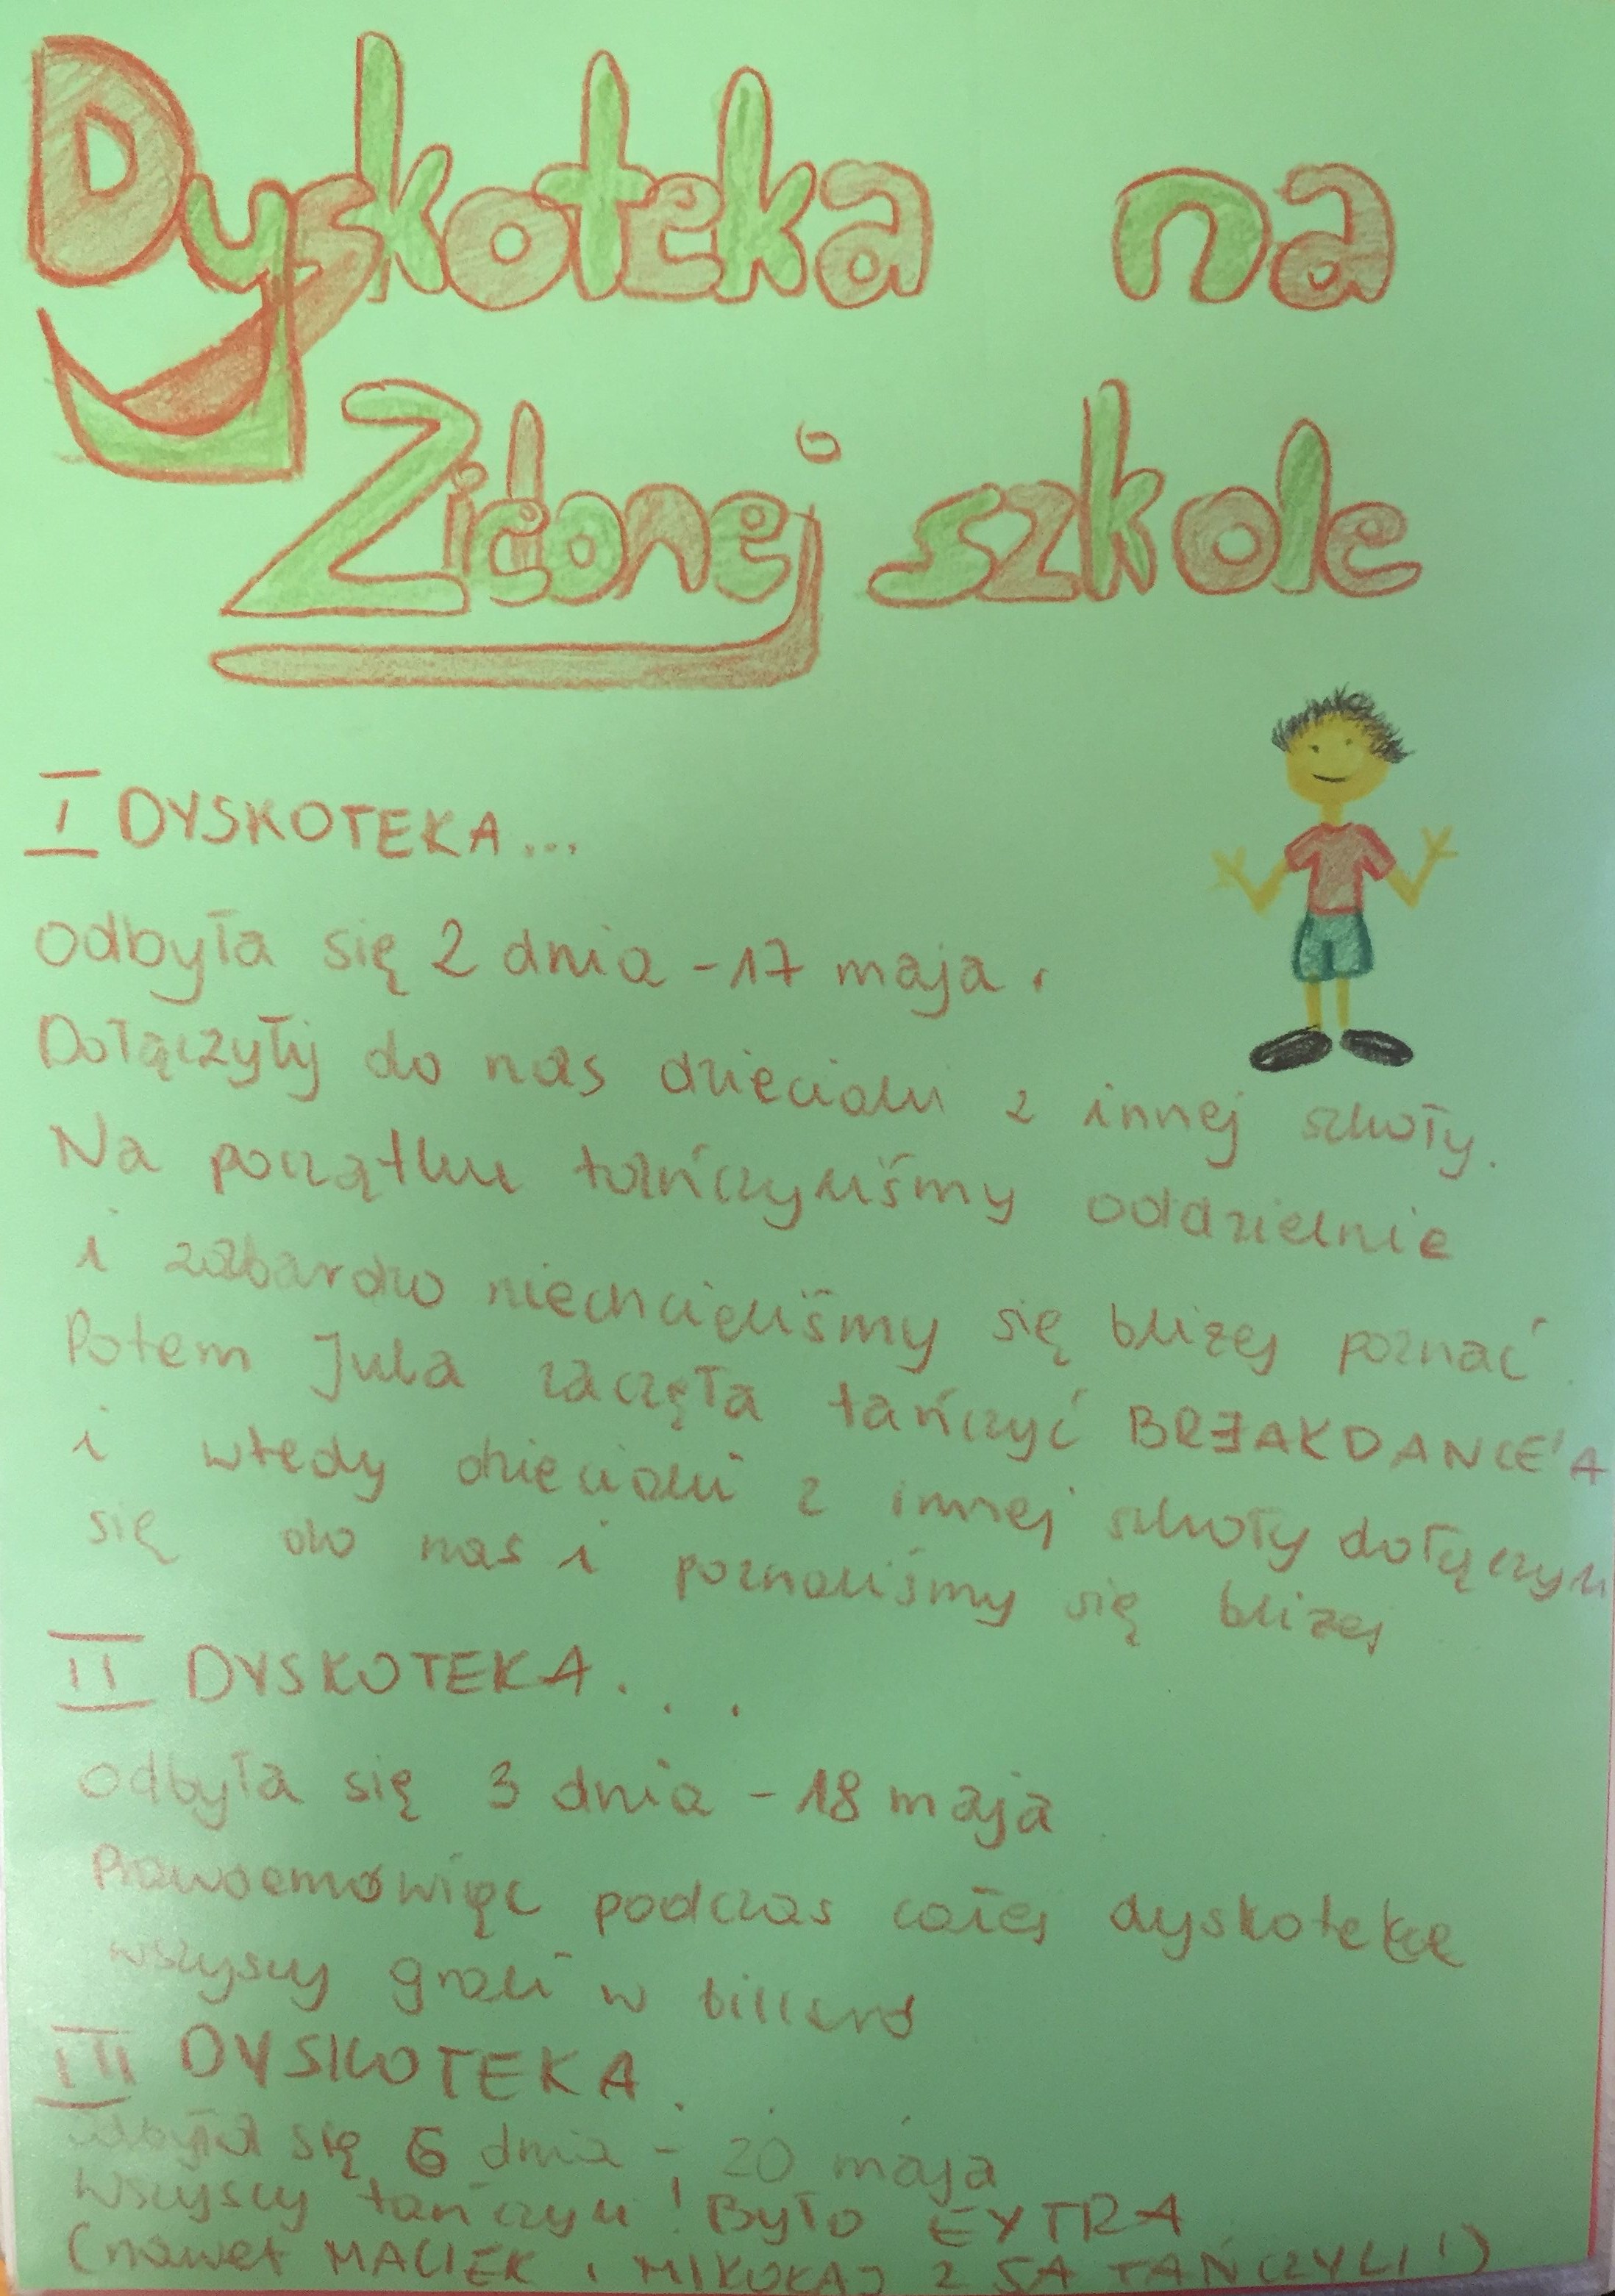 Dyskoteka na
Zielonej szkole
I DYSKOTEKA...
odbyła się 2 dnia - 17 maja.
Dołączyłij do nas dzieciaki z innej szkoły.
Na początku tańczyliśmy oddzielnie
i zabardzo niechcieliśmy się bliżej poznać.
Potem Jula zaczęła tańczyć BREAKDANCE'A
i wtedy dzieciaki z innej szkoły dołączyli
się do nas i poznaliśmy się bliżej
II DYSKOTEKA...
odbyła się 3 dnia - 18 maja
Prawdemówiąc podczas całej dyskotekce
wszyscy grali w billard
III DYSKOTEKA...
odbyła się 6 dnia - 20 maja
Wszyscy tańczyli! Było EXTRA
(nawet MACIEK i MIKOŁAJ z 5A TAŃCZYLI!)